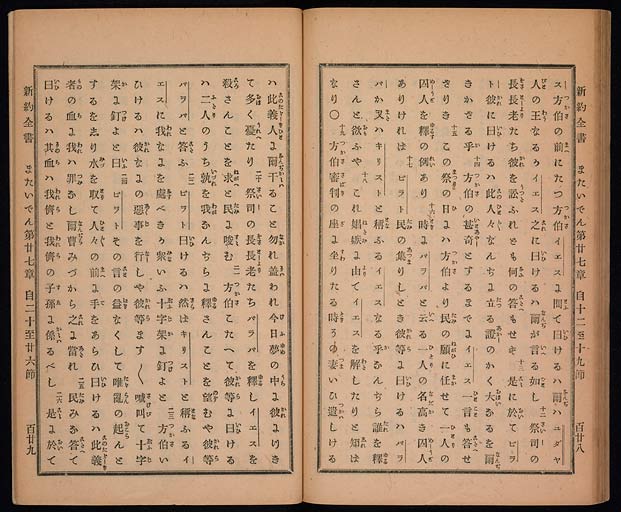 新約全書 またいでん第廿七章 自十二至十九節 百廿八
ス方伯の前にたつ方伯イエスに問て曰けるハ爾ハユダヤ
人の王なるかイエス之に曰けるハ爾が言る如し 祭司の
長長老たち彼を訟ふれども何の答もせず 是に於てピラ
ト彼に曰けるハ此人々なんぢに立る證のかく大なるを爾
きかざる乎 方伯の甚奇とするまでにイエス一言も答せ
ざりき この祭の日にハ方伯より民の願に任せて一人の
囚人を釋の例あり 時にバラバと云る一人の名高き囚人
ありければ ピラト民の集りしとき彼等に曰けるハバラ
バか又ハキリストと稱ふるイエスなる乎なんぢら誰を釋
さんと欲ふや これ娼嫉に由てイエスを解したりと知ば
なり〇 方伯審判の座に坐りたる時その妻いひ遣しける
ハ此義人に爾干ること勿れ蓋われ今日夢の中に彼につき
て多く憂たり 祭司の長長老たちバラバを釋しイエスを
殺さんことを求と民に唆む 方伯こたへて彼等に曰ける
ハ二人のうち孰を我なんぢらに釋さんことを望むや彼等
バラバと答ふ ピラト曰けるハ然ばキリストと稱ふるイ
エスに我なにを處べきか衆いふ十字架に釘よと 方伯い
ひけるハ彼なにの惡事を行しや彼等ます〳〵喊叫て十字
架に釘よと曰 ピラトその言の益なくして唯亂の起んと
するを志り水を取て人々の前に手をあらひ曰けるハ此義
者の血に我ハ罪なし爾曹みづから之に當れ 民みな答て
曰けるハ其血ハ我儕と我儕の子孫に係るべし 是に於て
新約全書 またいでん第廿七章 自二十至廿六節 百廿九